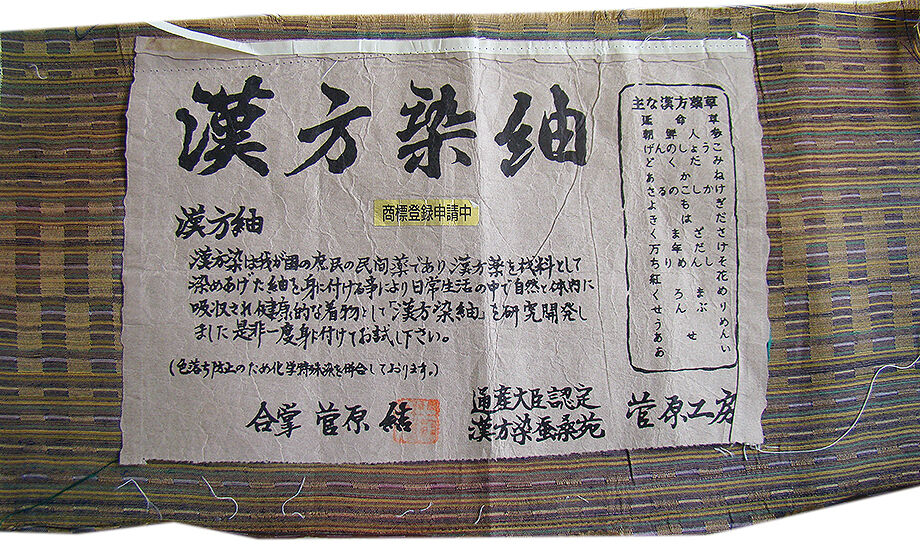 漢方染紬
商標登録申請中
漢方紬
漢方染は我が国の庶民の民間薬であり漢方薬を材料として
染めあげた紬を身に付ける事により日常生活の中で自然と体内に
吸収され健康的な着物として「漢方染紬」を研究開発し
ました是非一度身に付けてお試し下さい。
(色落ち防止のため化学特殊染を併合しております。)
主な漢方薬草
延命草
朝鮮人参
げんのしょうこ
どくだみ
あかね
さるのこしかけ
よもぎ
きはだ
くまざさ
万年だけ
ちりめんしそ
紅花
くろまめ
せんぶり
うめ
あせん
あい
合掌 菅原
通産大臣認定
漢方染蚕桑苑
菅原工房